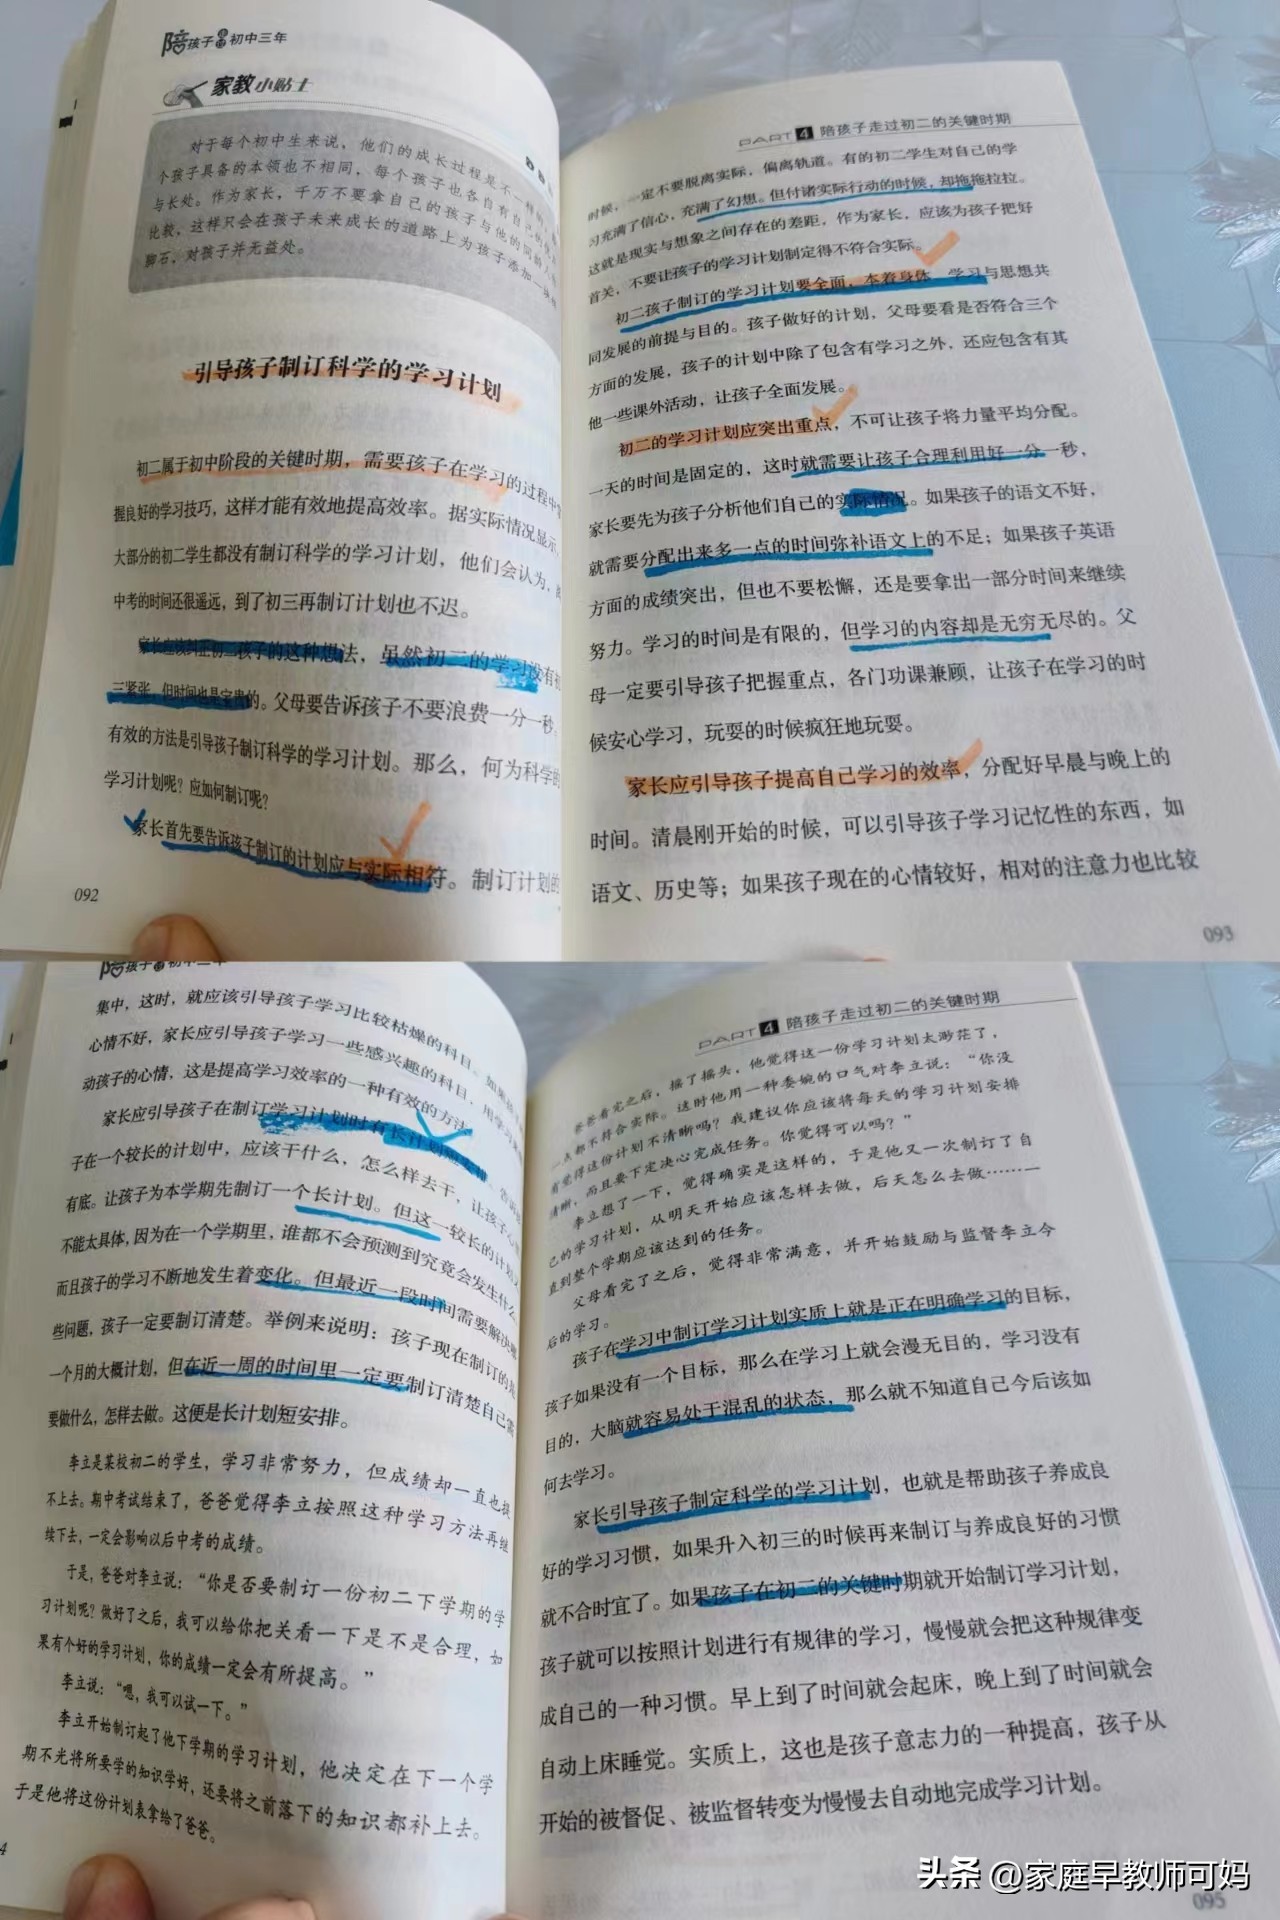 陪孩子走过初中三年
家教小贴士
对于每个初中生来说，他们的成长过程是不一样的
个孩子具备的本领也不相同，每个孩子也各自有自己的
与长处。作为家长，千万不要拿自己的孩子与他的同龄人
比较，这样只会在孩子未来成长的道路上为孩子添加一块绊
脚石，对孩子并无益处。
引导孩子制订科学的学习计划
初二属于初中阶段的关键时期，需要孩子在学习的过程中
握良好的学习技巧，这样才能有效地提高效率。据实际情况显示，
大部分的初二学生都没有制订科学的学习计划，他们会认为，
中考的时间还很遥远，到了初三再制订计划也不迟。
家长应该纠正初二孩子的这种想法，虽然初二的学习没有初
三紧张，但时间也是宝贵的。父母要告诉孩子不要浪费一分一秒，
有效的方法是引导孩子制订科学的学习计划。那么，何为科学的
学习计划呢？应如何制订呢？
家长首先要告诉孩子制订的计划应与实际相符。制订计划的
092
PART 4 陪孩子走过初二的关键时期
时候，一定不要脱离实际，偏离轨道。有的初二学生对自己的学
习充满了信心，充满了幻想。但付诸实际行动的时候，却拖拖拉拉。
这就是现实与想象之间存在的差距，作为家长，应该为孩子把好
首关，不要让孩子的学习计划制定得不符合实际。
初二孩子制订的学习计划要全面，本着身体、学习与思想共
同发展的前提与目的。孩子做好的计划，父母要看是否符合三个
方面的发展，孩子的计划中除了包含有学习之外，还应包含有其
他一些课外活动，让孩子全面发展。
初二的学习计划应突出重点，不可让孩子将力量平均分配。
一天的时间是固定的，这时就需要让孩子合理利用好一分一秒，
家长要先为孩子分析他们自己的实际情况。如果孩子的语文不好，
就需要分配出来多一点的时间弥补语文上的不足；如果孩子英语
方面的成绩突出，但也不要松懈，还是要拿出一部分时间来继续
努力。学习的时间是有限的，但学习的内容却是无穷无尽的。父
母一定要引导孩子把握重点，各门功课兼顾，让孩子在学习的时
候安心学习，玩耍的时候疯狂地玩耍。
家长应引导孩子提高自己学习的效率，分配好早晨与晚上的
时间。清晨刚开始的时候，可以引导孩子学习记忆性的东西，如
语文、历史等；如果孩子现在的心情较好，相对的注意力也比较
093
陪孩子走过初中三年
集中，这时，就应该引导孩子学习比较枯燥的科目。如果孩子
心情不好，家长应引导孩子学习一些感兴趣的科目，用学习
动孩子的心情，这是提高学习效率的一种有效的方法。
家长应引导孩子在制订学习计划时有长计划短安排。告诉孩
子在一个较长的计划中，应该干什么，怎么样去干，让孩子心
有底。让孩子为本学期先制订一个长计划。但这一较长的计划
不能太具体，因为在一个学期里，谁都不会预测到究竟会发生什么，
而且孩子的学习不断地发生着变化。但最近一段时间需要解决哪
些问题，孩子一定要制订清楚。举例来说明：孩子现在制订的是
一个月的大概计划，但在近一周的时间里一定要制订清楚自己需
要做什么，怎样去做。这便是长计划短安排。
李立是某校初二的学生，学习非常努力，但成绩却一直也提
不上去。期中考试结束了，爸爸觉得李立按照这种学习方法再继
续下去，一定会影响以后中考的成绩。
于是，爸爸对李立说：“你是否要制订一份初二下学期的学
习计划呢？做好了之后，我可以给你把关看一下是不是合理，如
果有个好的学习计划，你的成绩一定会有所提高。”
李立说：“嗯，我可以试一下。”
李立开始制订起了他下学期的学习计划，他决定在下一个学
期不光将所要学的知识学好，还要将之前落下的知识都补上去。
于是他将这份计划表拿给了爸爸。
4
PART 4 陪孩子走过初二的关键时期
爸爸看完之后，摇了摇头，他觉得这一份学习计划太渺茫了，
一点都不符合实际。这时他用一种委婉的口气对李立说：“你没
有觉得这份计划不清晰吗？我建议你应该将每天的学习计划安排
清晰，而且要下定决心完成任务。你觉得可以吗？”
李立想了一下，觉得确实是这样的，于是他又一次制订了自
己的学习计划，从明天开始应该怎样去做，后天怎么去做……一
直到整个学期应该达到的任务。
父母看完了之后，觉得非常满意，并开始鼓励与监督李立今
后的学习。
孩子在学习中制订学习计划实质上就是正在明确学习的目标，
孩子如果没有一个目标，那么在学习上就会漫无目的，学习没有
目的，大脑就容易处于混乱的状态，那么就不知道自己今后该如
何去学习。
家长引导孩子制定科学的学习计划，也就是帮助孩子养成良
好的学习习惯，如果升入初三的时候再来制订与养成良好的习惯
就不合时宜了。如果孩子在初二的关键时期就开始制订学习计划，
孩子就可以按照计划进行有规律的学习，慢慢就会把这种规律变
成自己的一种习惯。早上到了时间就会起床，晚上到了时间就会
自动上床睡觉。实质上，这也是孩子意志力的一种提高，孩子从
开始的被督促、被监督转变为慢慢去自动地完成学习计划。
095
头条 @家庭早教师可妈